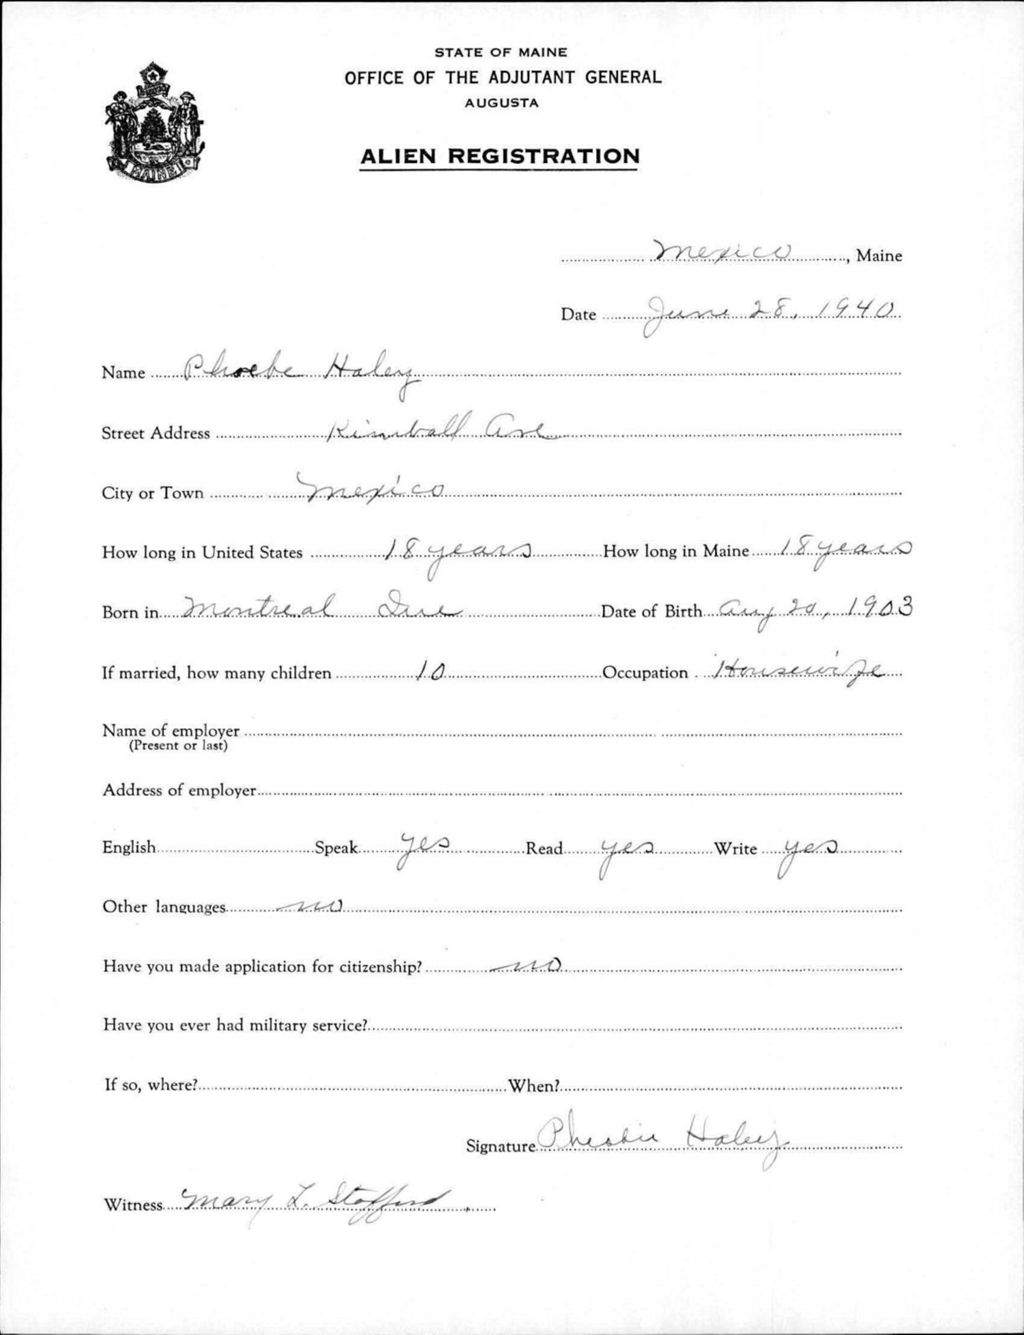 STATE OF MAINE
OFFICE OF THE ADJUTANT GENERAL
AUGUSTA
ALIEN REGISTRATION
MAINE
Mexico, Maine
Date June 28, 1940
Name Phoebe Haley
Street Address Kimball Ave
City or Town Mexico
How long in United States 18 years How long in Maine 18 years
Born in Montreal Date of Birth Aug 20, 1903
If married, how many children 10 Occupation Housewife
Name of employer
(Present or last)
Address of employer
English Speak yes Read yes Write yes
Other languages no
Have you made application for citizenship? no
Have you ever had military service?
If so, where? When?
Signature Haley
Witness Mary L. Stafford